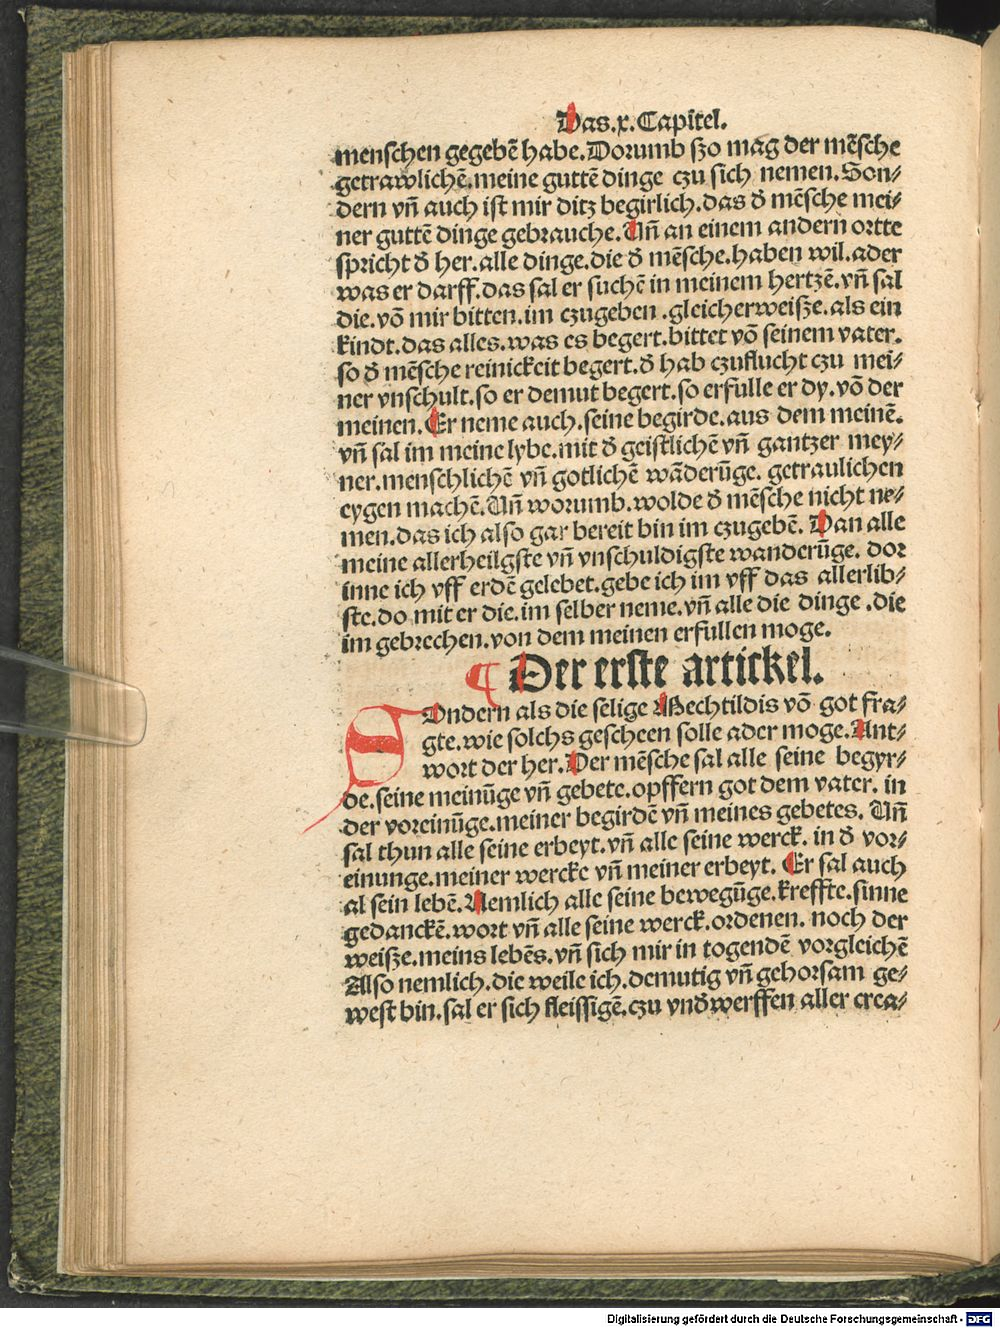 Das.x.Capitel.
menschen gegebē habe.Dorumb ßo mag der mēsche
getrawlichē.meine guttē dinge czu sich nemen.Son⸗
dern vn̄ auch ist mir ditz begirlich.das d̄ mēsche mei⸗
ner guttē dinge gebrauche.Un̄ an einem andern ortte
spricht d̄ her.alle dinge.die d̄ mēsche.haben wil.ader
was er darff.das sal er suchē in meinem hertzē.vn̄ sal
die.vō mir bitten.im czugeben.gleicherweiße.als ein
kindt.das alles.was es begert.bittet vō seinem vater.
so d̄ mēsche reinickeit begert.d̄ hab czuflucht czu mei⸗
ner vnschult.so er demut begert.so erfulle er dy.vō der
meinen.Er neme auch.seine begirde.aus dem meinē.
vn̄ sal im meine lybe.mit d̄ geistlichē vn̄ gantzer mey⸗
ner.menschlichē vn̄ gotlichē wāderūge. getraulichen
eygen machē.Un̄ worumb.wolde d̄ mēsche nicht ne⸗
men.das ich also gar bereit bin im czugebē. Dan alle
meine allerheilgste vn̄ vnschuldigste wanderūge. dor
inne ich vff erdē gelebet.gebe ich im vff das allerlib⸗
ste.do mit er die.im selber neme.vn̄ alle die dinge .die
im gebrechen.von dem meinen erfullen moge.
¶ Der erste artickel.
SOndern als die selige Mechtildis vō got fra⸗
gte.wie solchs gescheen solle ader moge.Ant⸗
wort der her.Der mēsche sal alle seine begyr⸗
de.seine meinūge vn̄ gebete.opffern got dem vater. in
der voreinūge.meiner begirdē vn̄ meines gebetes. Un̄
sal thun alle seine erbeyt.vn̄ alle seine werck. in d̄ vor⸗
einunge.meiner wercke vn̄ meiner erbeyt. Er sal auch
al sein lebē.Nemlich alle seine bewegūge.kreffte.sinne
gedanckē.wort vn̄ alle seine werck.ordenen. noch der
weiße.meins lebēs.vn̄ sich mir in togendē vorgleichē
Also nemlich.die weile ich.demutig vn̄ gehorsam ge⸗
west bin.sal er sich fleissigē.czu vnd̄werffen aller crea⸗
Digitalisierung gefördert durch die Deutsche Forschungsgemeinschaft - DFG